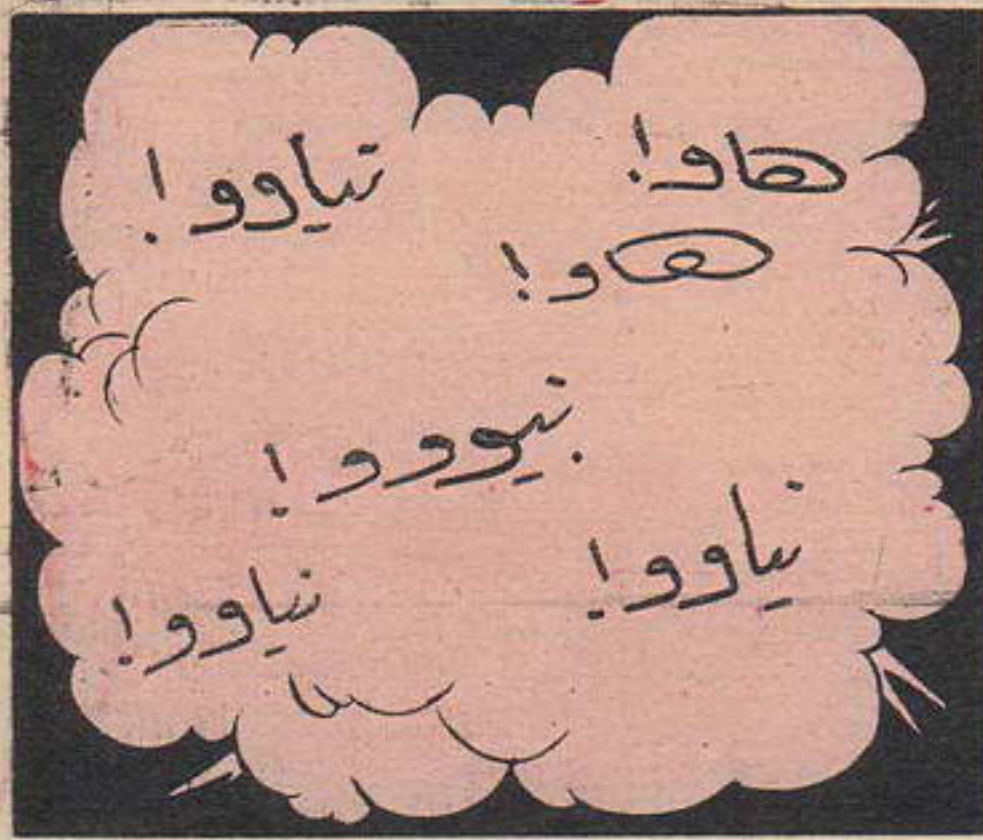 هاو!
نياوو!
هاو!
نيووو!
نياوو!
نياوو!